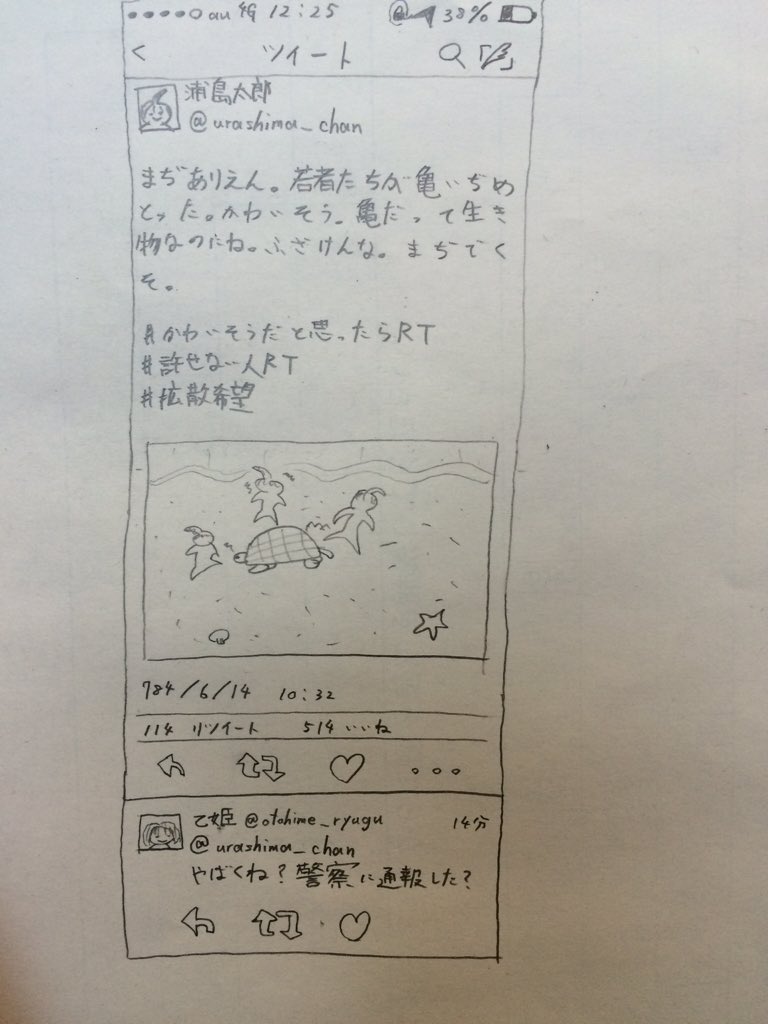 au 12:25 38%
< ツイート
浦島太郎
@urashima_chan
まぢありえん。若者たちが亀いぢめ
とった。かわいそう。亀だって生き
物なのにね。ふざけんな。まぢでく
そ。
#かわいそうだと思ったらRT
#許せない人RT
#拡散希望
784/6/14 10:32
114 リツイート 514 いいね
乙姫 @otohime_ryugu 14分
@urashima_chan
やばくね?警察に通報した?